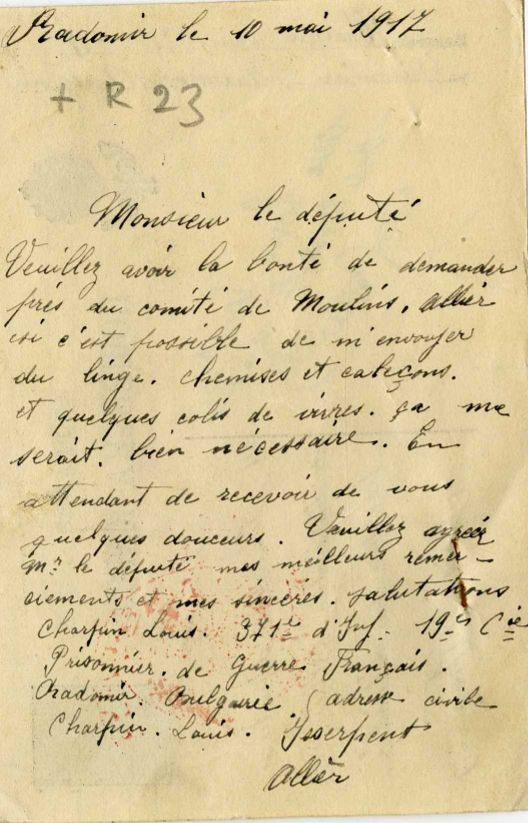 Radomir le 10 mai 1917
+ R 23
Monsieur le député
Veuillez avoir la bonté de demander
près du comité de Moulins. Allier
si c'est possible de m'envoyer
du linge. chemises et caleçons.
et quelques colis de vivres. ça me
serait. bien nécessaire. En
attendant de recevoir de vous
quelques douceurs. Veuillez agréer
Mr le député mes meilleurs remer-
ciements et mes sincères. salutations
Charpin Louis. 371e d'Inf. 19e Cie
Prisonnier. de Guerre Français.
Radomir. Bulgarie (adresse civile
Charpin. Louis. Isserpent
Allier